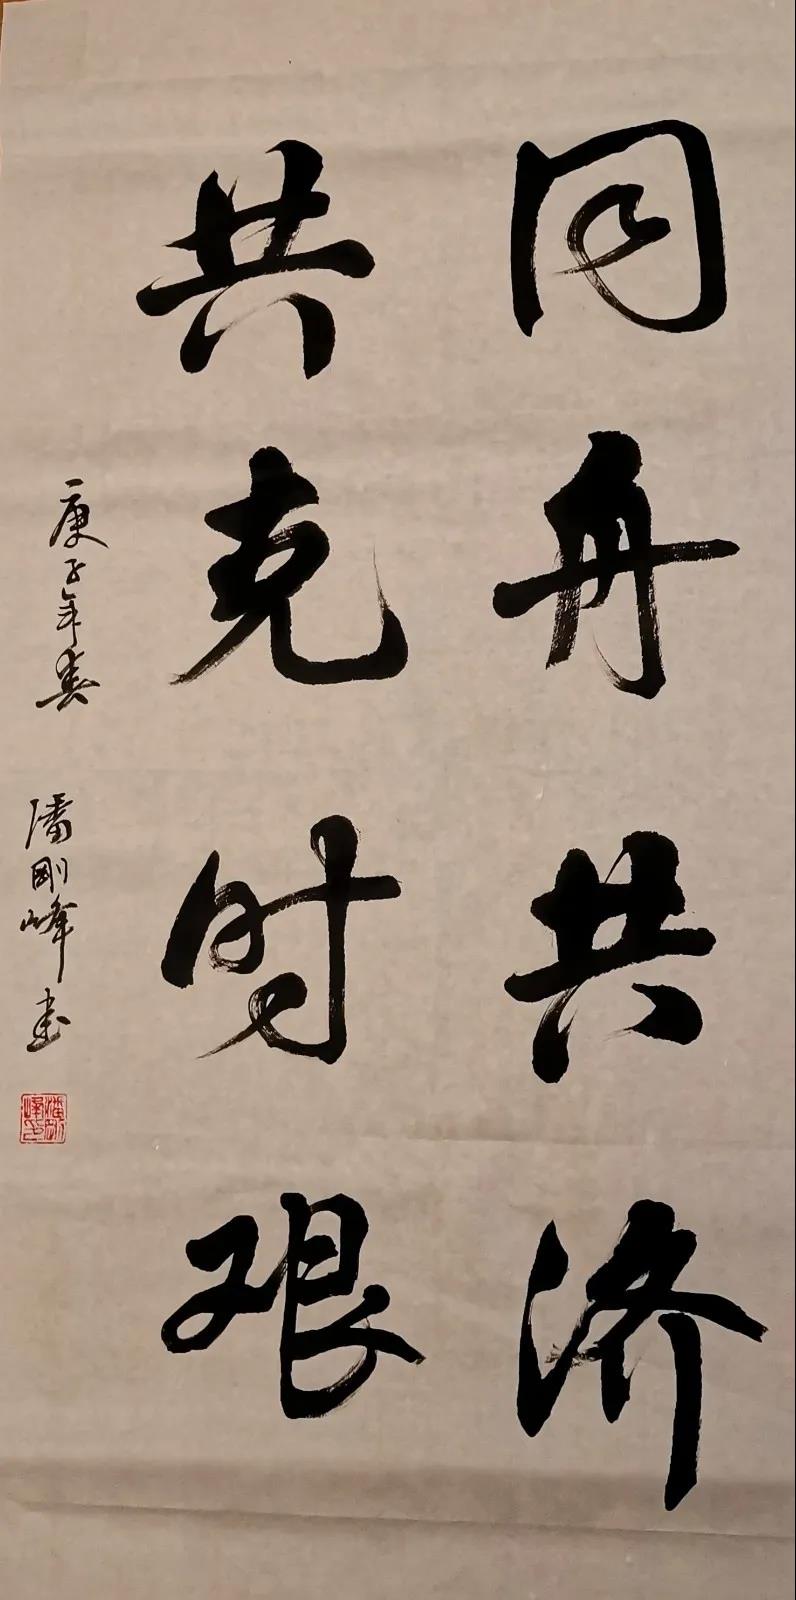 同舟共济
共克时艰
庚子年春 潘刚峰书
潘刚峰印